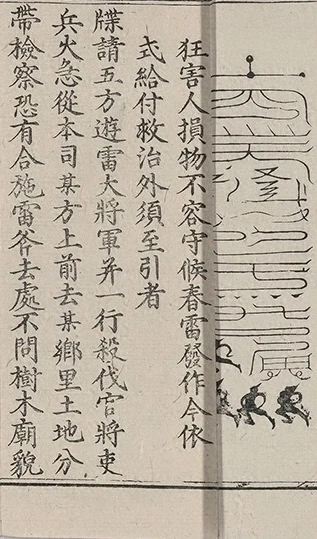 狂害人損物不容守候春雷發作今依
式給付救治外須至引者
牒請五方遊雷大將軍并一行殺伐官將吏
兵火急從本司某方上前去某鄉里土地分
帶檢察恐有合施雷斧去處不問樹木廟貌